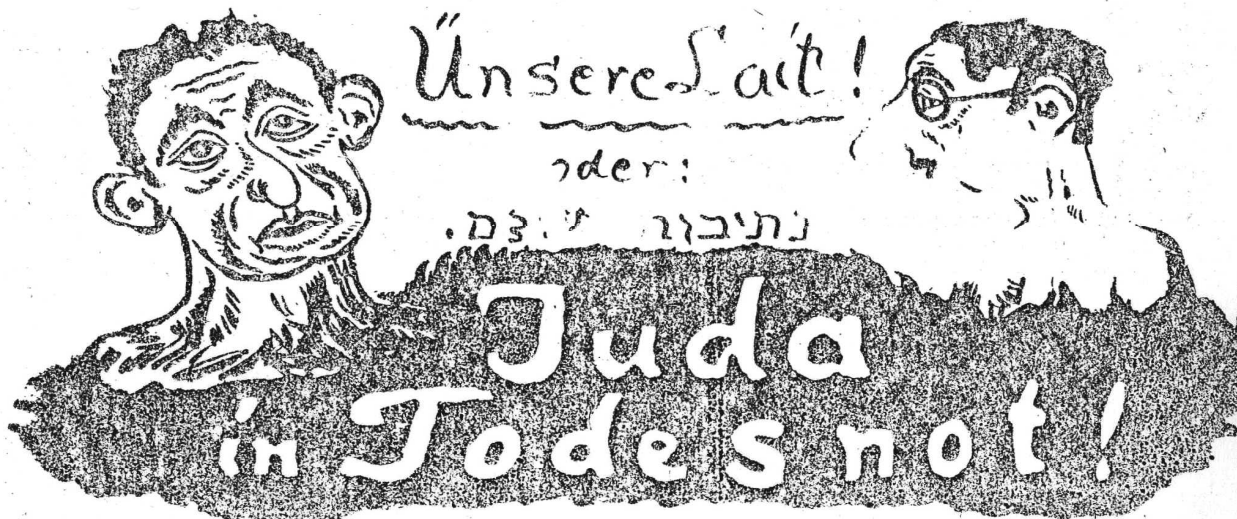 Ünsere Lait!
oder:
Juda
in Todesnot!